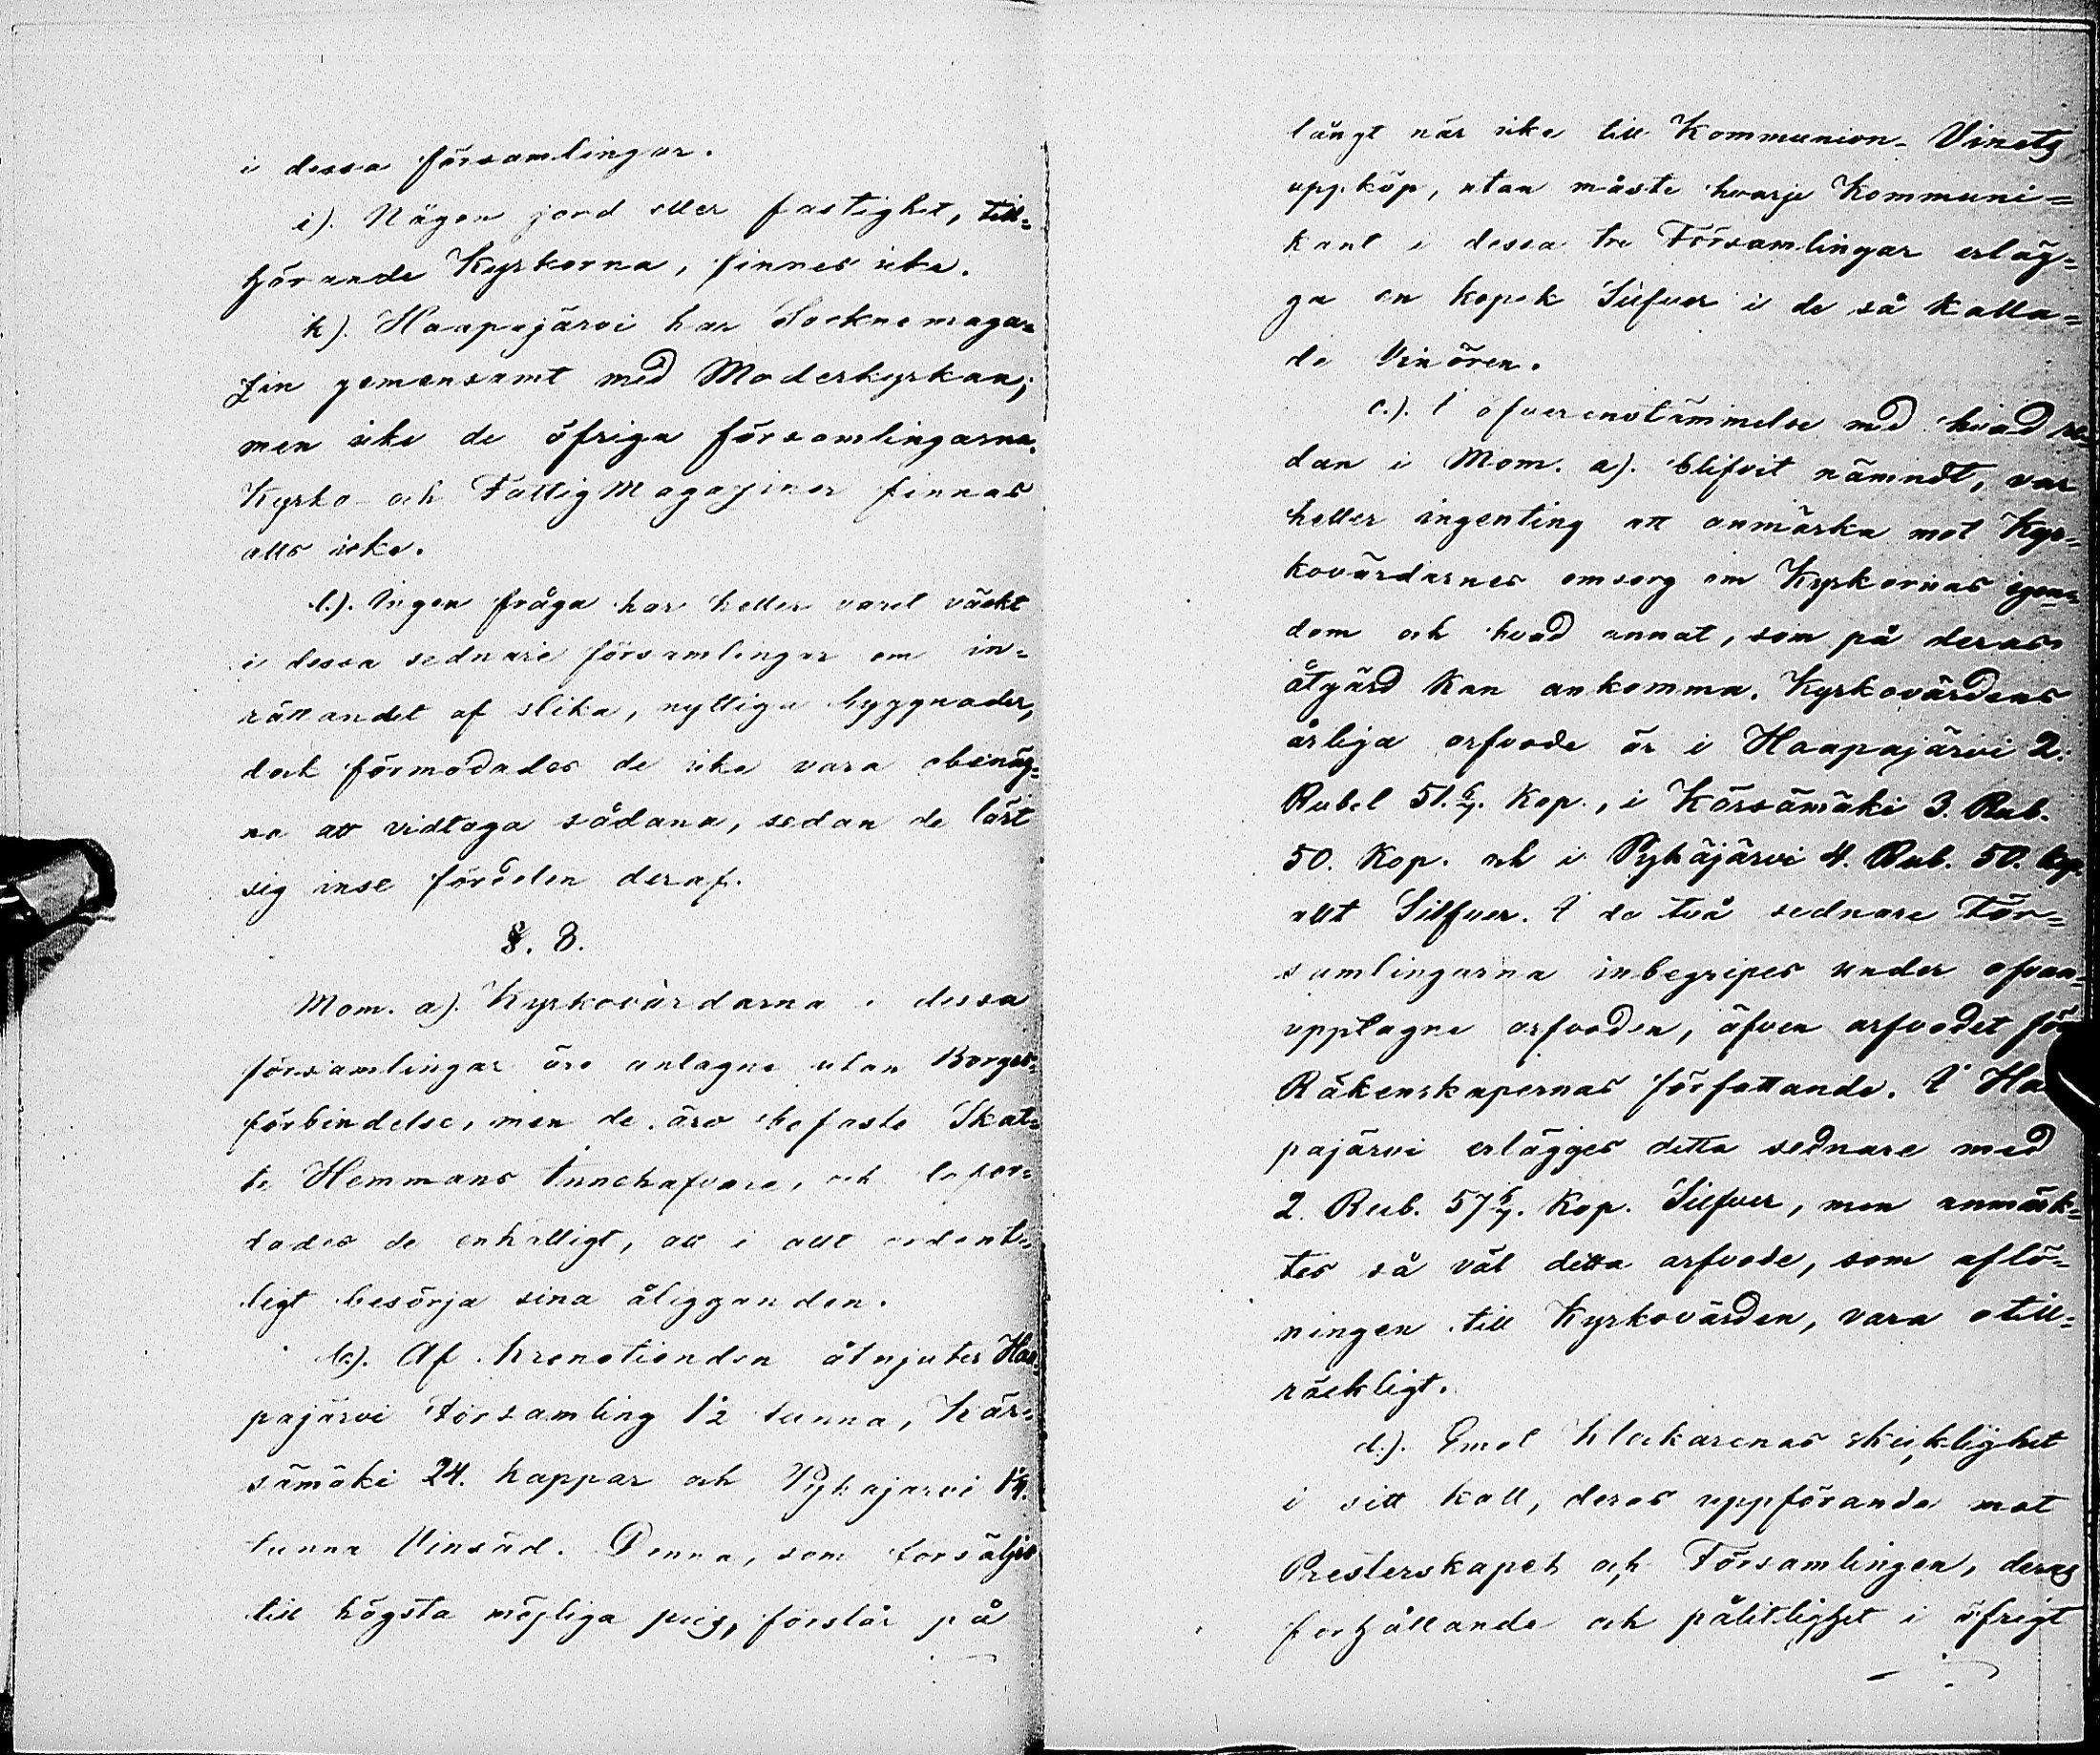 i dessa församlingar.
i). Någon jord eller fastighet, till=
hörande Kyrkorna, finnes icke.
k). Haapajärvi har Socknemaga=
zin gemensamt med Moderkyrkan;
men icke de öfriga församlingarna.
Kyrko och Fattig Magaziner finnas
alls icke.
l.). Ingen fråga har heller varit väckt
i dessa sednare församlingar om in=
rättandet af slika, nyttiga byggnader,
dock förmodades de icke vara obenäg=
na att vidtaga sådana, sedan de lärt
sig inse fördelen deraf.
§. 8.
Mom. a). Kyrkovärdarna i dessa
församlingar äro antagne utan Borges=
förbindelse, men de äro bofaste Skat=
te Hemmans Innehafvare, och lofor=
dades de enhälligt, att i allt ordent=
ligt besörja sina åligganden.
b). Af Kronotienden åtnjuter Haa=
pajärvi Församling 1½ tunna, Kär=
sämäki 24. kappar och Pyhäjärvi 1¼.
tunna Vinsäd. Denna, som försäljes
till högsta möjliga pris, förslår på
långt när icke till Kommunion-Vinets
uppköp, utan måste hvarje Kommuni=
kant i dessa tre Församlingar erläg=
ga en kopek Silfver i de så kalla=
de Vinören.
c.). I öfverenstämmelse med hvad re=
dan i Mom. a). blifvit nämndt, var
heller ingenting att anmärka mot Kyr=
kovärdarnes omsorg om Kyrkornas egen=
dom och hvad annat, som på deras
åtgärd kan ankomma. Kyrkovärdens
årliga arfvode är i Haapajärvi 2.
Rubel 51.6/7. Kop., i Kärsämäki 3. Rub.
50. Kop. och i Pyhäjärvi 4. Rub. 50. Kop.
allt Silfver. I de två sednare För=
samlingarna inbegripes under ofvan=
upptagne arfvoden, äfven arfvodet för
Räkenskapernas författande. I Haa
pajärvi erlägges detta sednare med
2. Rub. 57 6/7. Kop. Silfver, men anmärk=
tes så väl detta arfvode, som aflö=
ningen till Kyrkovärden, vara otill=
räckligt.
d.). Emot Klockarenas skicklighet
i sitt kall, deras uppförande mot
Presterskapet och Församlingen, deras
förhållande och pålitlighet i öfrigt